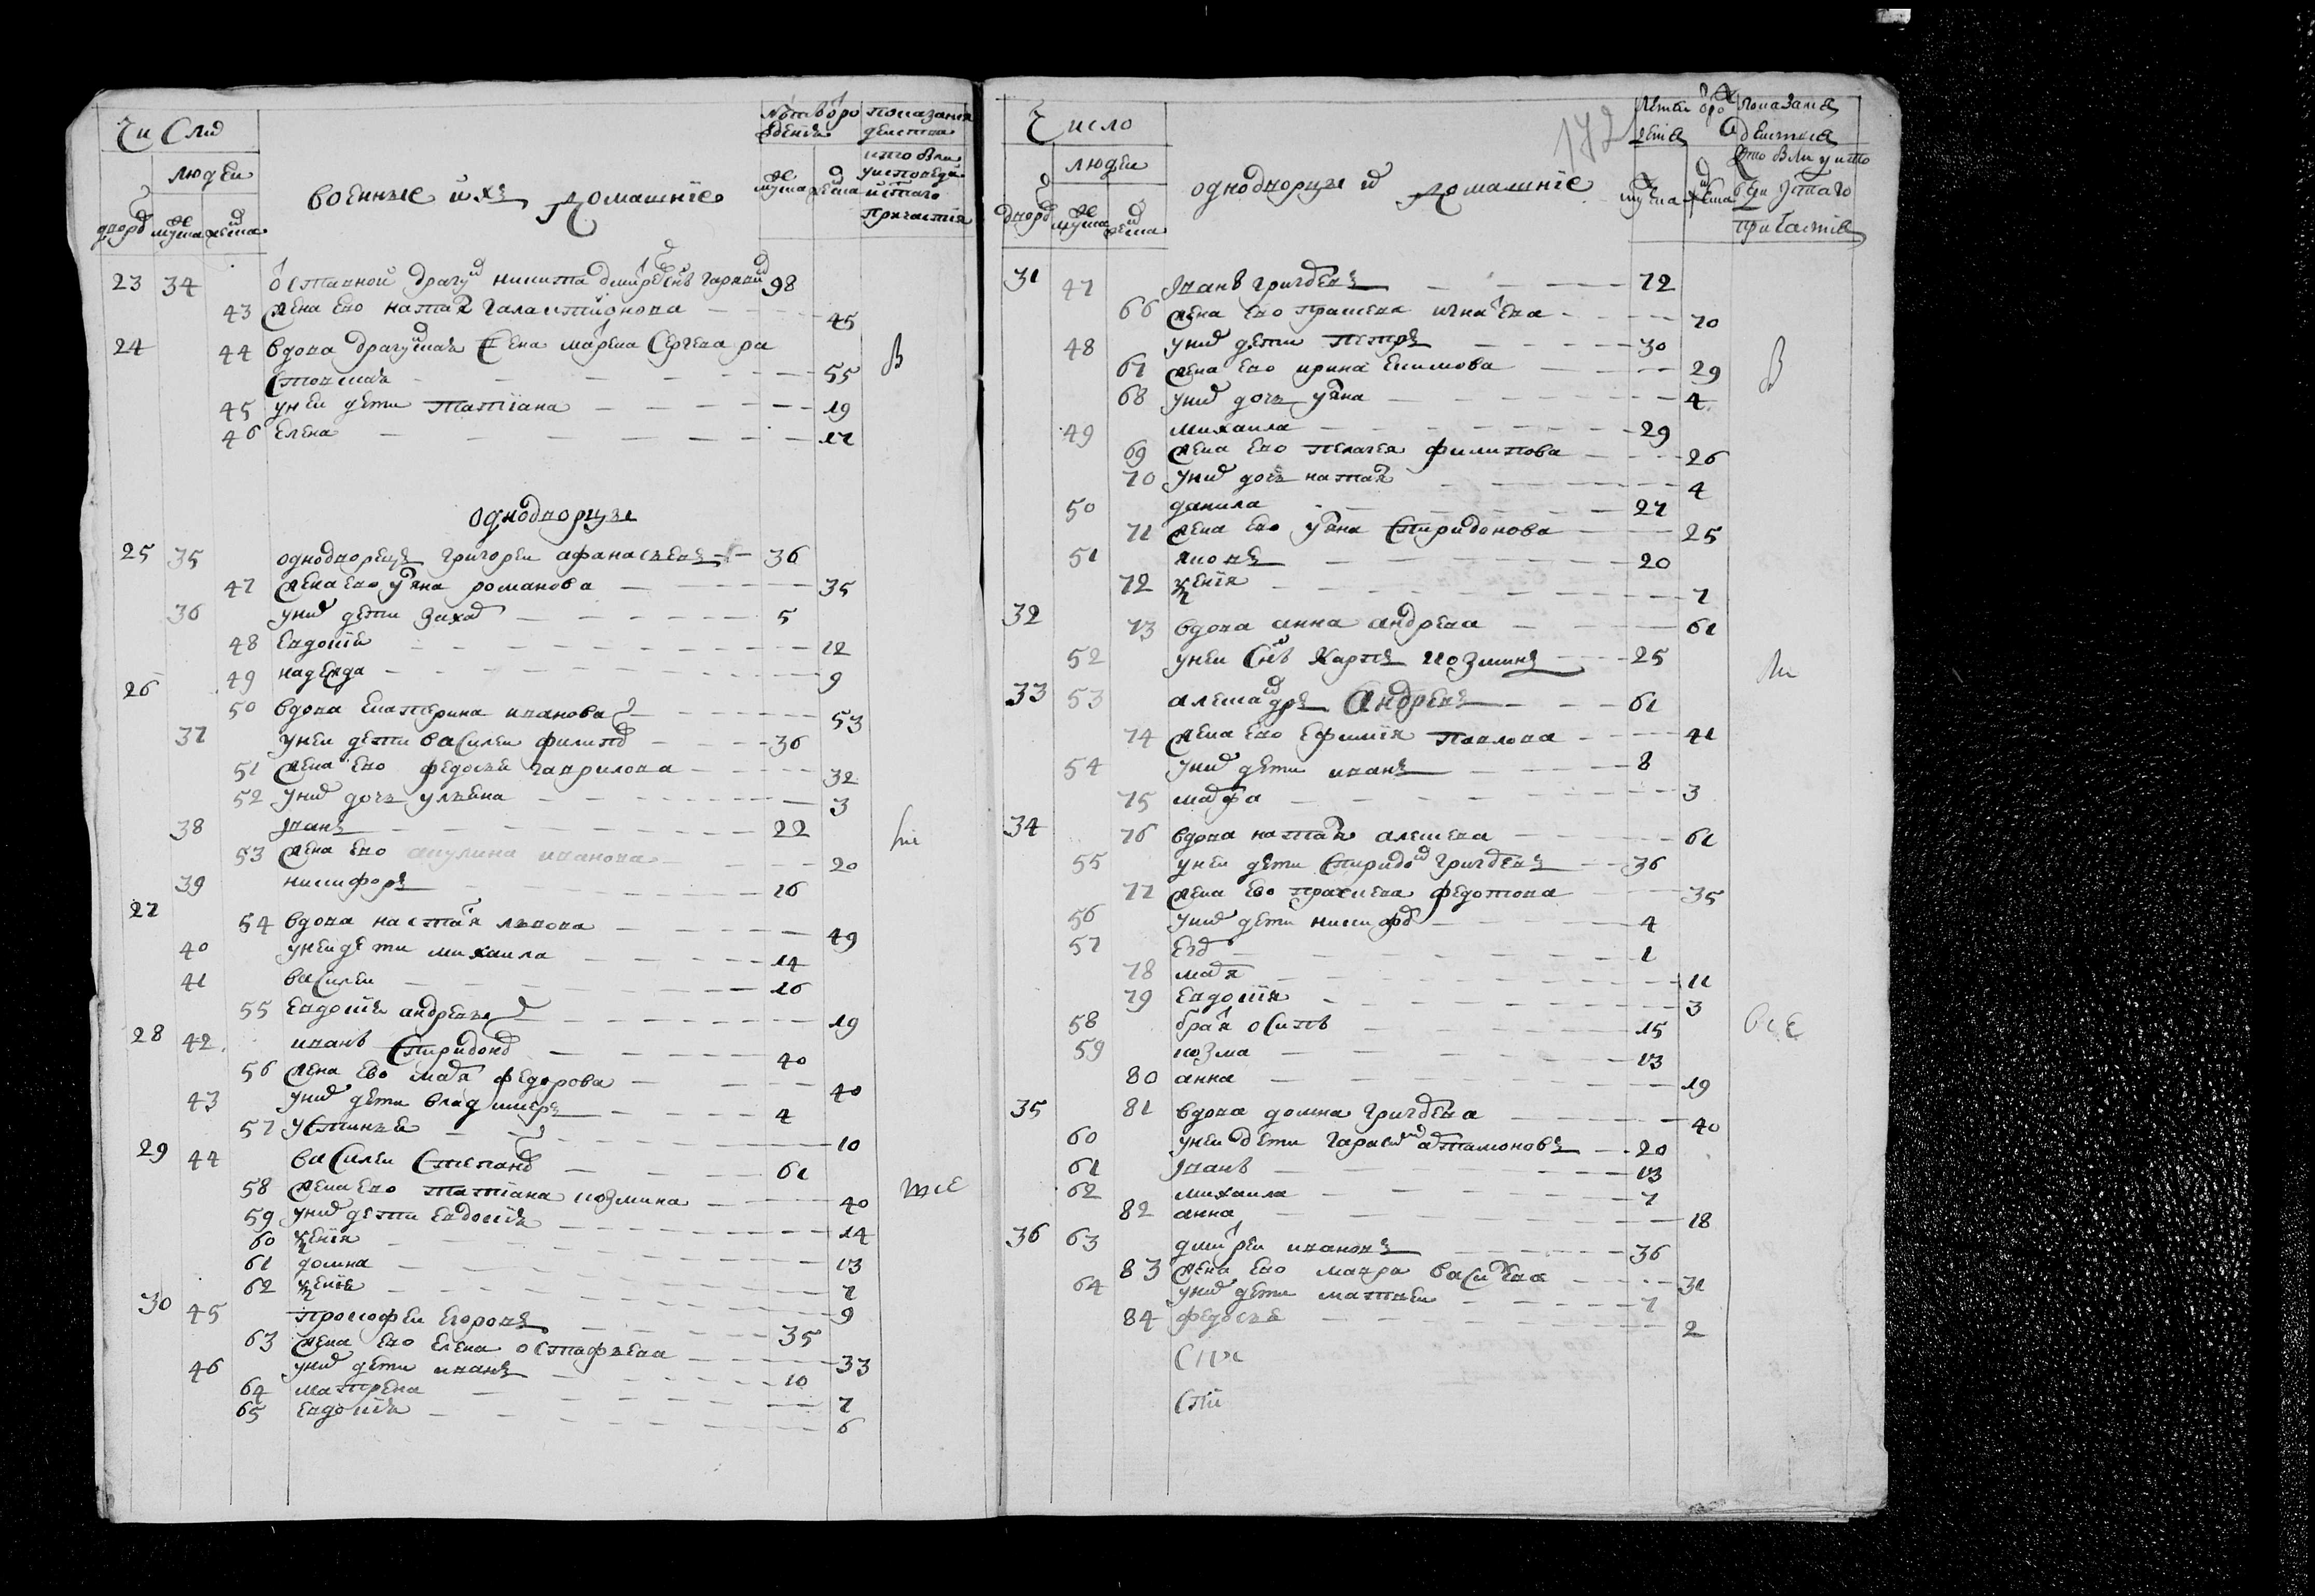 Число
людеи
дворо
мужска
женска
военные и ихъ домашние
лѣтъ от рождения
мужска
женска
показание действа кто были у исповеди и святаго причастия
23 34 отставной драгун никита дмитреевъ 98
43 жена ево настася галактионова 45
24 44 вдова драгунская жена марена сергева ра
55
45 у неи дети татиана 19
46 елена 17
однодворцы
25 35 однодворецъ григореи афанасьевъ 36
47 жена ево улияна романова 35
36 у них дети захар 5
48 евдокия 12
49 надежда 9
26 50 вдова екатерина иванова 53
37 у неи дети василеи филипо 36
51 жена ево федосья гаврилова 32
52 у них дочь ульяна 3
38 иванъ 22
53 жена ево акулина иванова 20
39 никифоръ 16
27 54 вдова настася львова 49
40 у неи дети михаила 14
41 василеи 16
55 евдокия андреевы 19
28 42 иванъ спиридоно 40
56 жена ево маря федорова 40
43 у них дети владимиръ 4
57 устинья 10
29 44 василеи степано 61
58 жена ево татиана козмина 40
59 у них дети евдокия 14
60 ксения 13
61 домна 7
62 ксения 9
30 45 прокофеи егоровъ 35
63 жена ево елена остафьева 33
46 у них дети иванъ 10
64 матрена 7
65 евдокия 6
Число
людеи
дворо
мужска
женска
172
однодворцы и домашние
мужска
женска
показания действия кто были у исповеди у святаго причастия
31 47 иванъ григоревъ 72
66 жена ево прасковя игнатева 70
48 у них дети петръ 30
67 жена ево ирина екимова 29
68 у них дочь улияна 4
49 михаила 29
69 жена ево пелагея филипова 26
70 у них дочь настася 4
50 данила 27
71 жена ево улияна спиридонова 25
51 яковъ 20
72 ксения 7
32 73 вдова анна андрева 61
52 у неи снъ карпъ козминъ 25
33 53 александръ андревъ 61
74 жена ево ефимия павлова 41
54 у них дети иванъ 8
75 марфа 3
34 76 вдова настася алексева 61
55 у неи дети спиридон григоревъ 36
77 жена ево прасковя федотова 35
56 у них дети никифор 4
57 егор 1
78 маря 11
79 евдокия 3
58 братя осипъ 15
59 козма 13
80 анна 19
35 81 вдова домна григорева 40
60 у неи дети гарасим артамоновъ 20
61 иванъ 13
62 михаила 7
82 анна 18
36 63 дмитреи ивановъ 36
83 жена ево мавра василева 31
64 у них дети матвеи 7
84 федосья 2